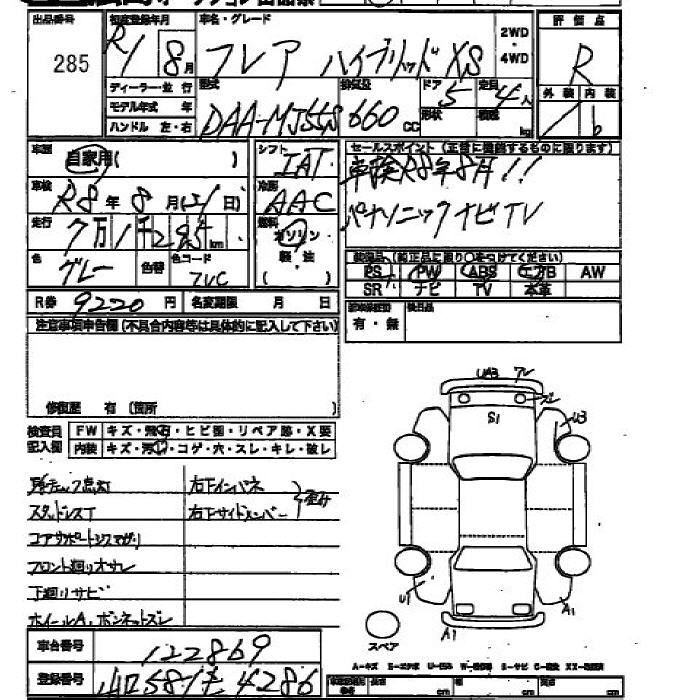 出品番号 初度登録年月 車名・グレード 2WD・4WD 評価点
285 R1 8月 フレア ハイブリッド XS R
ディーラー・並行 型式 排気量 ドア 定員 外装 内装
モデル年式 年 DAA-MJ55S 660cc 形状 5 積載 4人 kg
ハンドル 左・右 b
車歴 自家用( ) シフト IAT セールスポイント(正常に機能するものに限ります)
車検 R8年8月(21日) 冷房 AAC 車検R8年8月!!
走行 7万1千285km 燃料 ガソリン・軽油 ( ) パナソニックナビTV
色 グレー 色替 色コード ZVC
PS PW ABS エアB AW
SR ナビ TV 本革
R券 9220円 名変期限 月 日
有・無
注意事項申告欄(不具合内容等は具体的に記入して下さい)
修復歴 有(箇所 )
検査員記入欄 FW キズ・飛石・ヒビ割・リペア跡・X要
内装 キズ・汚れ・コゲ・穴・スレ・キレ・破レ
右下インパネ
スタッドレスT 右下サイドメンバー
コアサポートシタマガリ
フロント廻りオサレ
下廻りサビ
ホイールA、ボンネットズレ
UA3
S1
U3
U1
A1
A1
スペア
車台番号 122869
登録番号 山口581 4286
A-キズ
cm cm cm